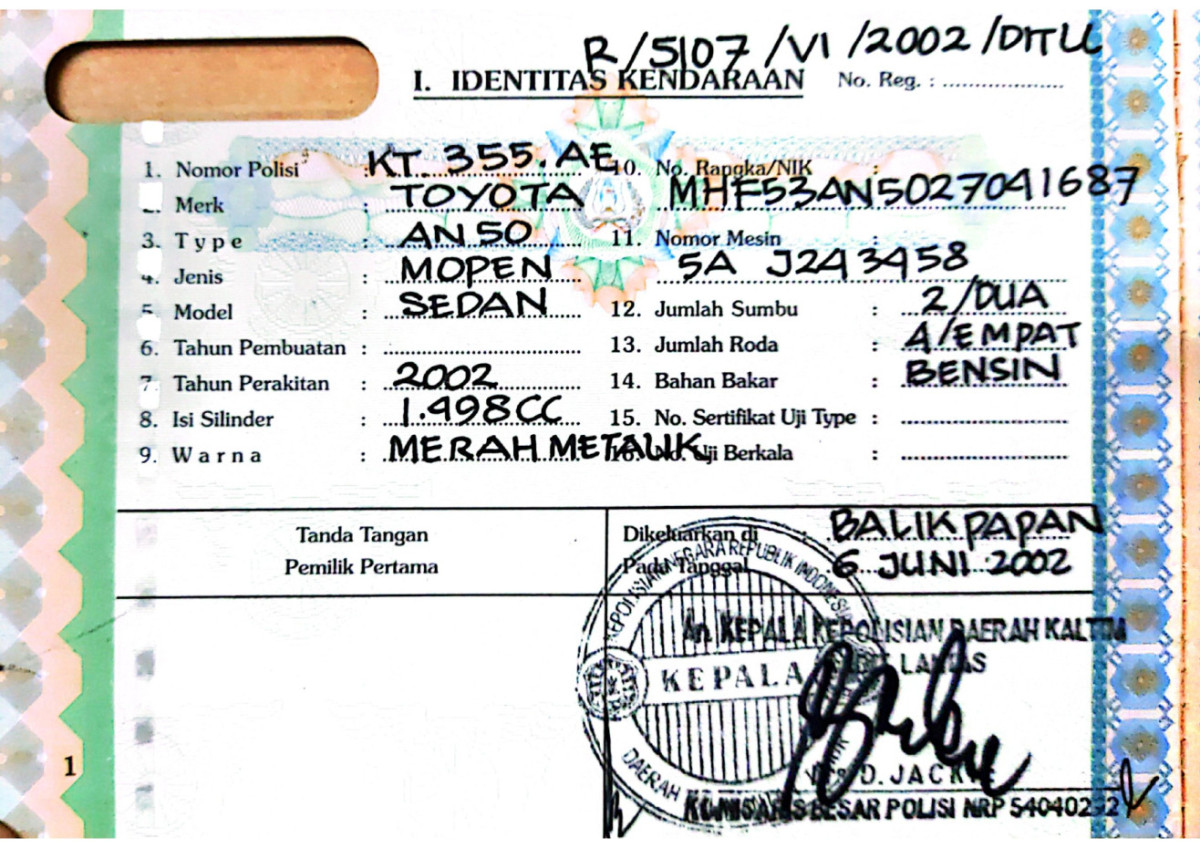 R/5107/VI/2002/DITLL
I. IDENTITAS KENDARAAN
No. Reg. :
1. Nomor Polisi : KT. 355. AE
Merk : TOYOTA
3. Type : AN 50
4. Jenis : MOPEN
5. Model : SEDAN
6. Tahun Pembuatan :
7. Tahun Perakitan : 2002
8. Isi Silinder : 1.498CC
9. Warna : MERAH METALIK
10. No. Rangka/NIK :
MHF53AN5027041687
11. Nomor Mesin :
5A J243458
12. Jumlah Sumbu : 2/DUA
13. Jumlah Roda : 4/EMPAT
14. Bahan Bakar : BENSIN
15. No. Sertifikat Uji Type :
16. No. Uji Berkala :
Tanda Tangan
Pemilik Pertama
Dikeluarkan di BALIKPAPAN
Pada Tanggal 6 JUNI 2002
KEPOLISIAN NEGARA REPUBLIK INDONESIA
An. KEPALA KEPOLISIAN DAERAH KALTIM
LANTAS
KEPALA
DAERAH
D. JACK
KOMISARIS BESAR POLISI NRP
1